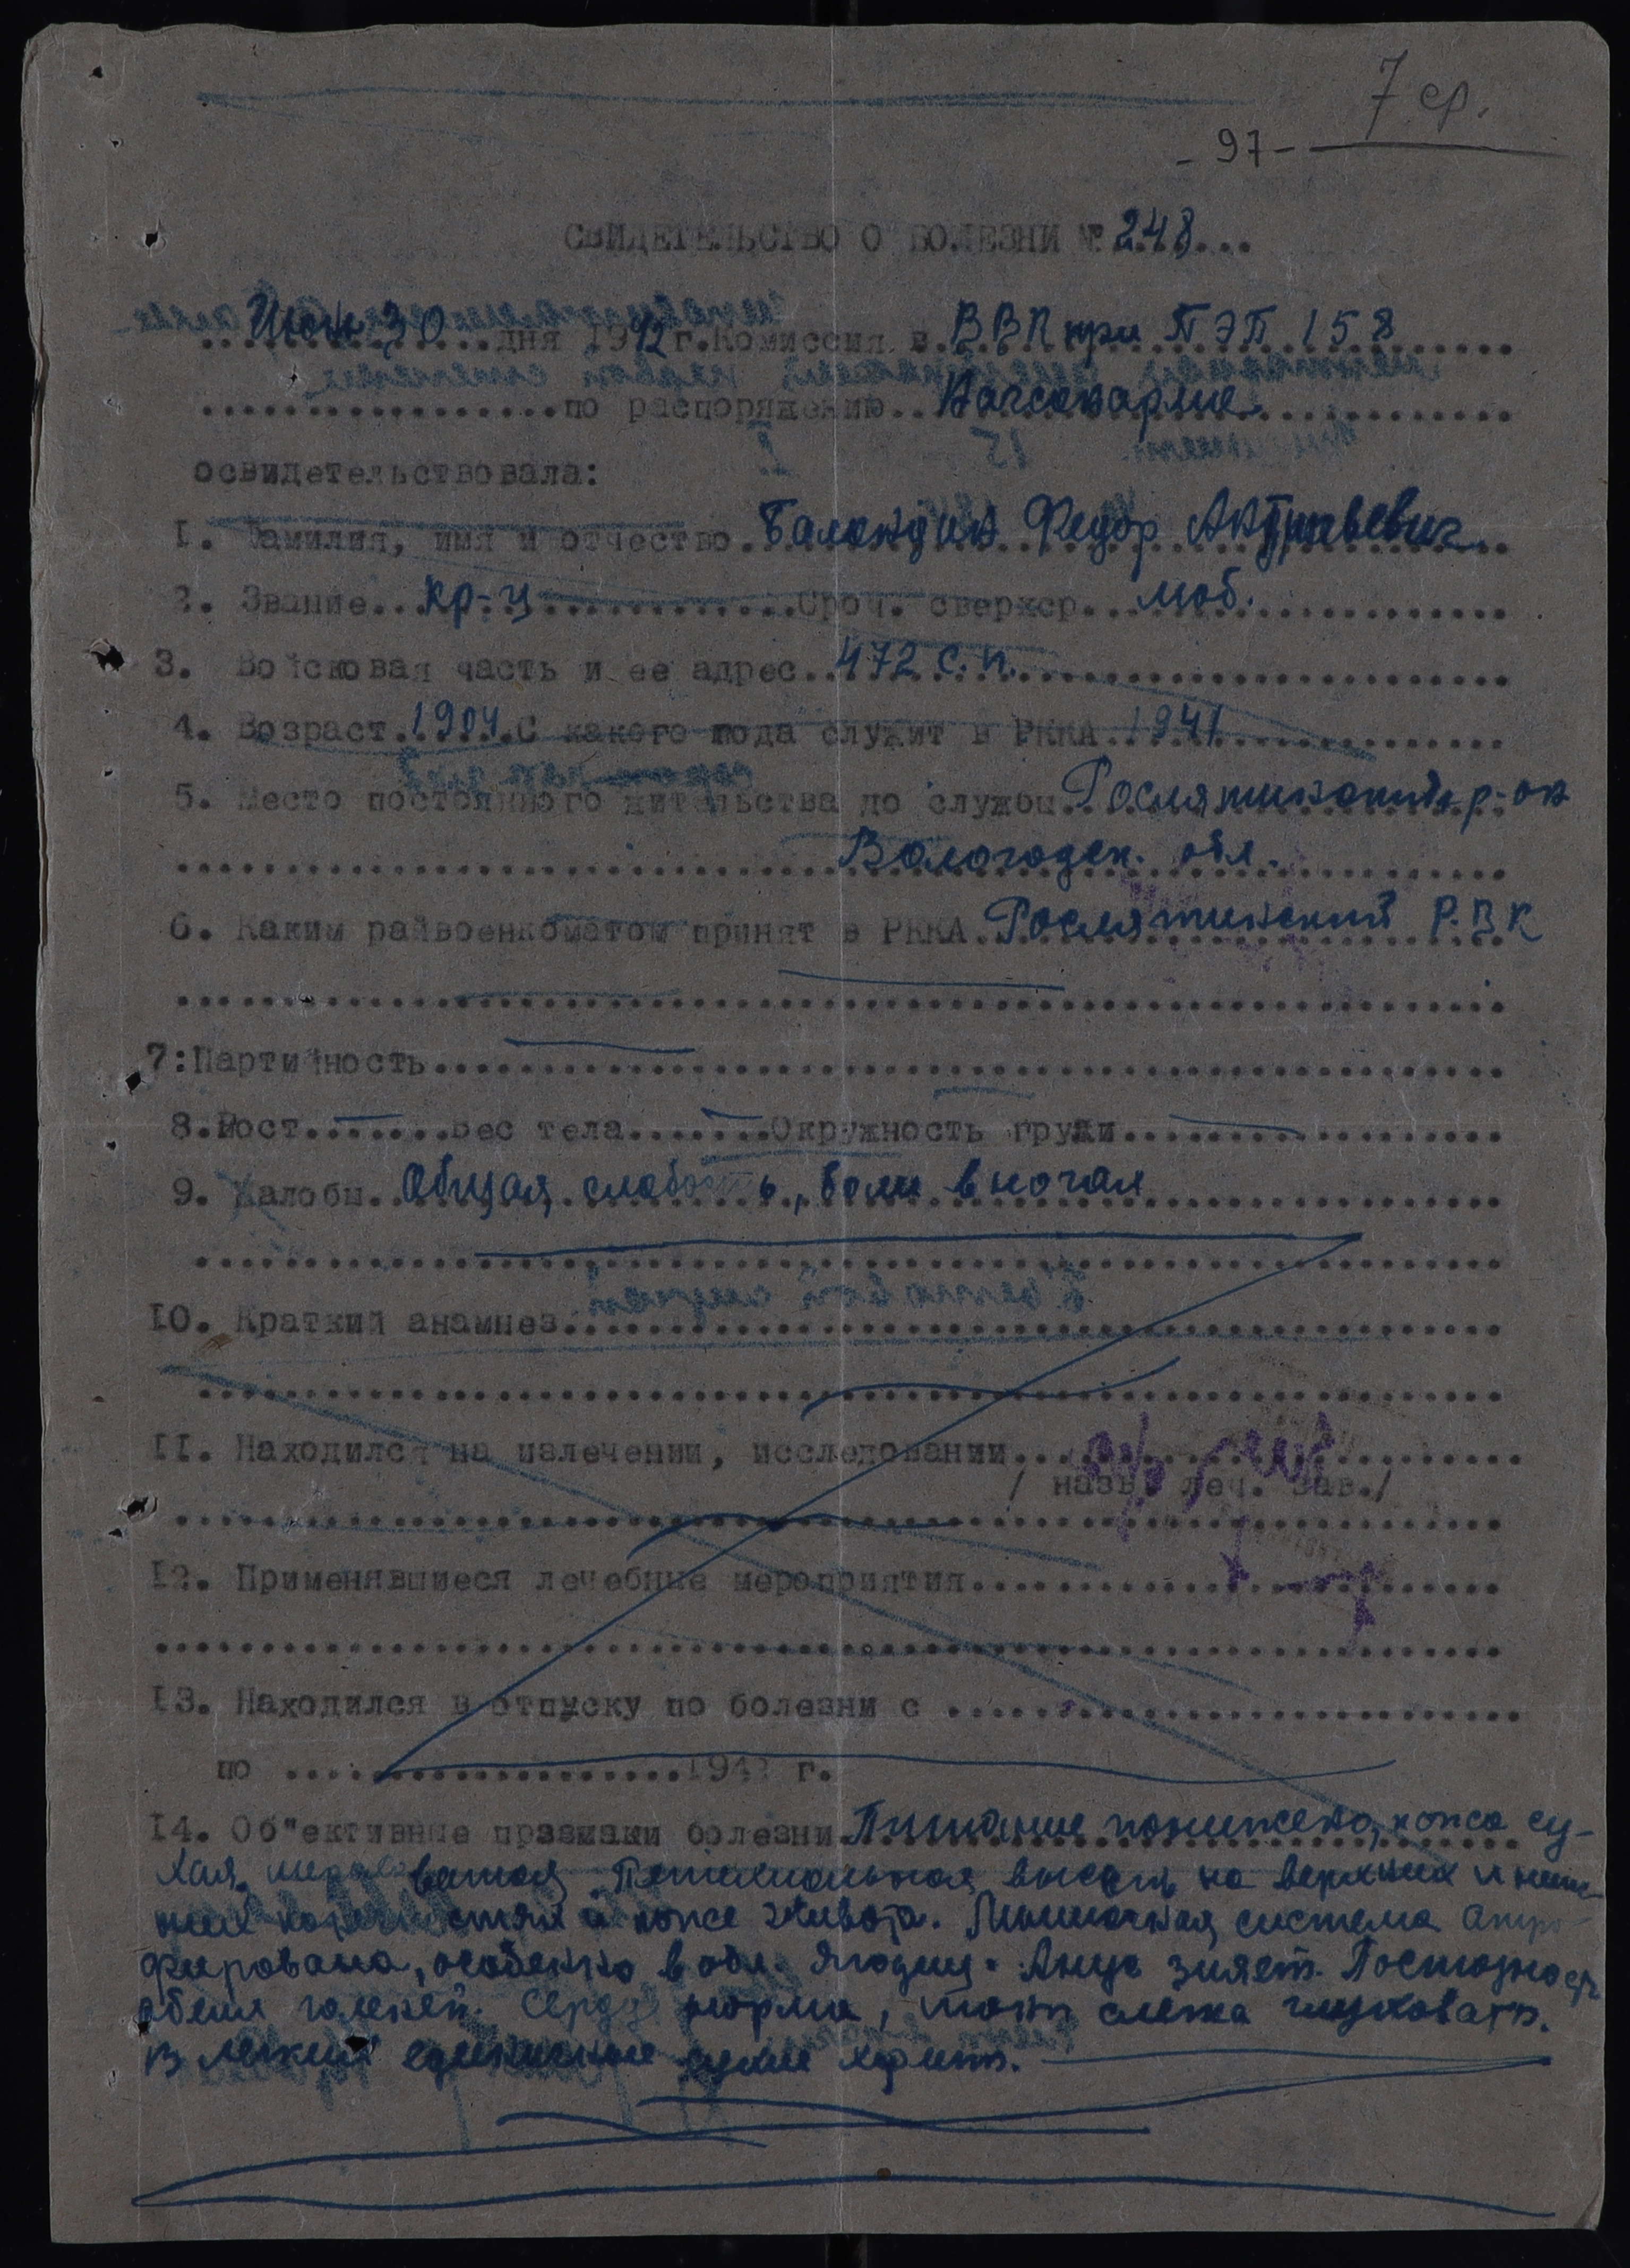 7 ср.
- 97 -
СВИДЕТЕЛЬСТВО О БОЛЕЗНИ № 248...
30 дня 1942 г. Комиссия в ВВК при ПЭП 158
по распоряжению
освидетельствовала:
1. Фамилия, имя и отчество Баландин Федор
2. Звание кр-ц Сроч. сверхср. моб.
3. Войсковая часть и ее адрес 472 с.п.
4. Возраст 1904. С какого года служит в РККА 1941
5. Место постоянного жительства до службы Рослятинский р-он
Вологодск. обл.
6. Каким райвоенкоматом принят в РККА Рослятинский Р.В.К
7: Партийность
8. Рост Вес тела Окружность груди
9. Жалобы Общая слабость, боли в ногах
10. Краткий анамнез
11. Находился на излечении, исследовании
/ назв. леч. зав./
12. Применявшиеся лечебные мероприятия
13. Находился в отпуску по болезни с
по 194 г.
14. Об"ективные празнаки болезни Питание понижено, кожа су-
хая, Петехиальная высыпь на верхних и ниж-
них конечностях и коже живота. Мышечная система атро-
фирована, особенно в обл. ягодиц. Анус зияет. Пастозность
обеих голеней. Сердце норма, тоны слегка глуховаты.
В легких единичные сухие хрипы.